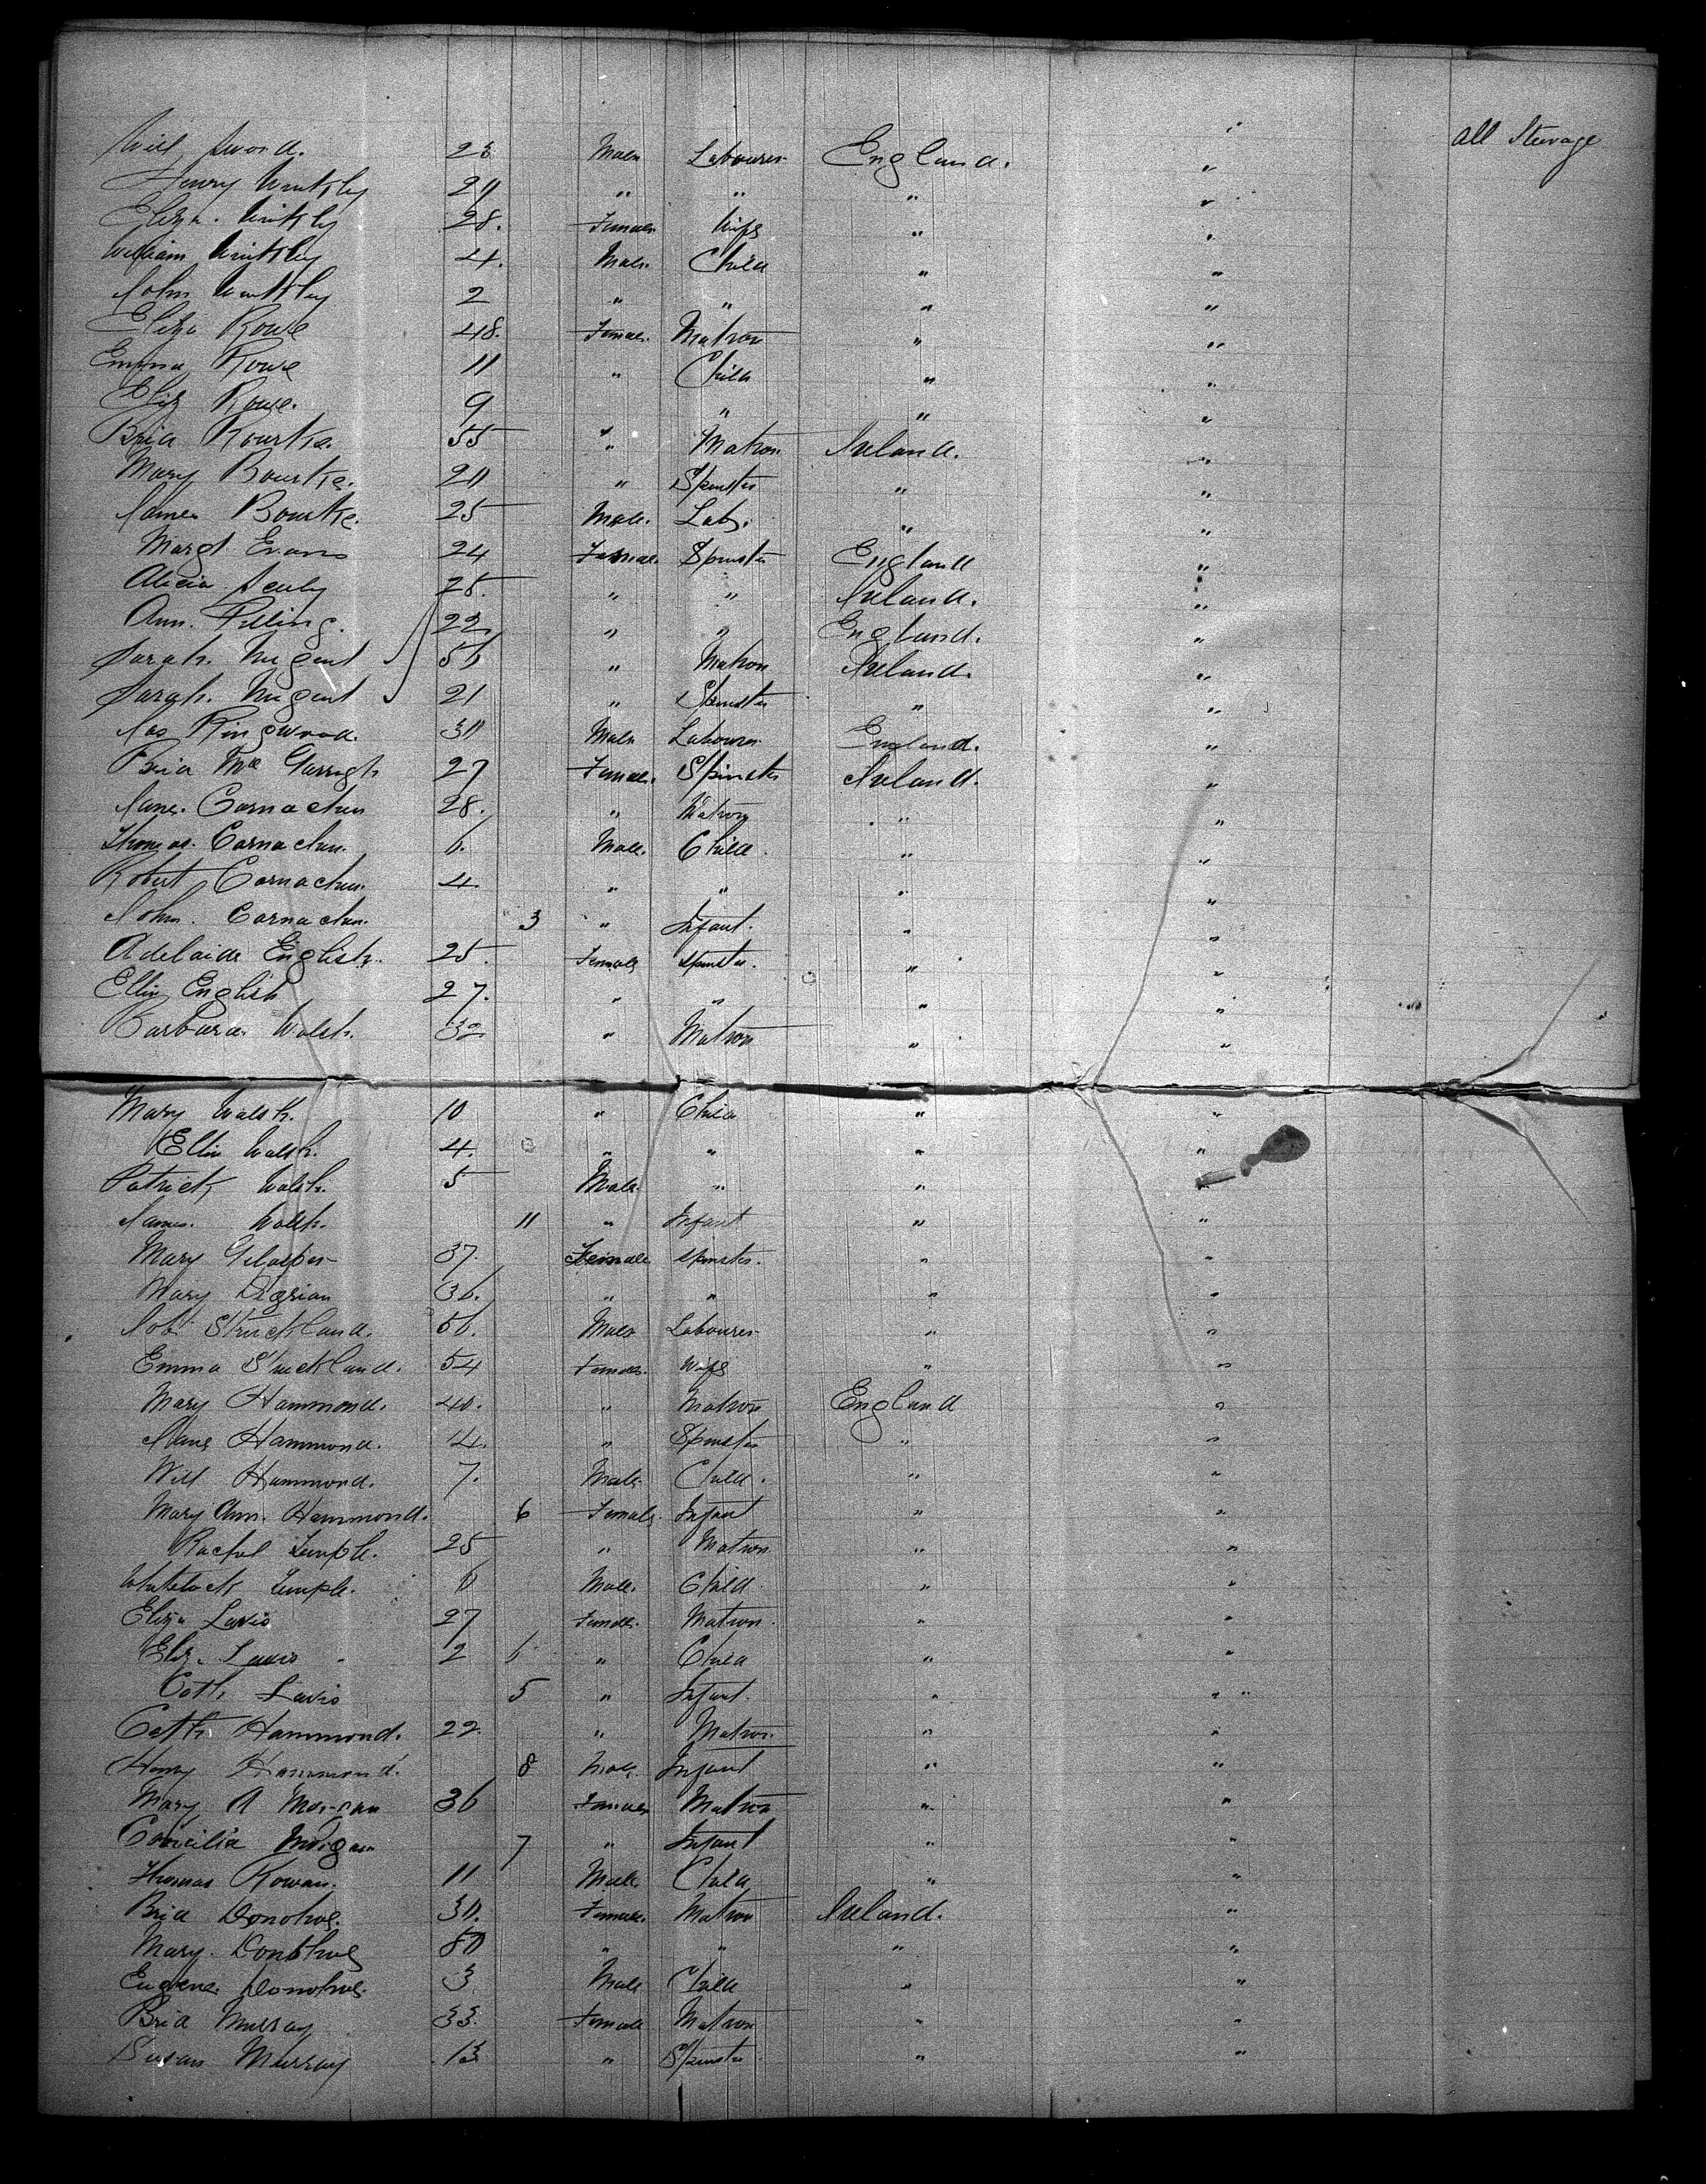 all Steerage
Will Sword. 23 Male Labourer England. "
Henry 20 " " " "
Eliza. 28. Female Wife " "
William 4. Male Child " "
John 2 " " " "
Eliza Rowe 48. Female. Matron " "
Emma Rowe 11 " Child " "
Eliz Rowe. 9 " " "
Brid Rourke. 55 " Matron Ireland. "
Mary Bourke. 20 " Spinster " "
James Bourke. 25 Male. Lab. " "
Margt Evans 24 Female. Spinster England "
Alicia Scully 25. " " Ireland. "
Ann. Pilling. 22 " " England. "
Sarah. Nugent 50 " Matron Ireland. "
Sarah. Nugent 21 " Spinster " "
Jas Ringwood. 30 Male Labourer England. "
Brid Mc Garrigh 27 Female. Spinster Ireland. "
Jane. Carnachan 28. " Matron " "
Thomas. Carnachan. 6. Male. Child. " "
Robert Carnachan. 4. " " " "
John. Carnachan. 3 " Infant. " "
Adelaide English. 25. Female Spinster. " "
Ellin English 27. " " " "
Barbara Walsh. 32 " Matron " "
Mary Walsh. 10 " Child " "
Ellin Walsh. 4. " " " "
Patrick Walsh. 5 Male. " " "
James. Walsh. 11 " Infant " "
Mary 37. Female Spinster. " "
Mary 36. " " " "
Robt Strickland. 56. Male Labourer " "
Emma Strickland. 54 Female. Wife " "
Mary Hammond. 40. " Matron England "
Jane Hammond. 14. " Spinster " "
Will Hammond. 7. Male Child. " "
Mary Ann. Hammond. 6 Female. Infant " "
Rachel Temple. 25 " Matron " "
Whitelock Temple. 6 Male. Child " "
Eliza Lavis 27 Female. Matron. " "
Eliz. Lavis 2 6 " Child " "
Cath Lavis 5 " Infant. " "
Cath Hammond. 22. " Matron. " "
Henry Hammond. 8 Male. Infant " "
Mary A Morgan 36 Female Matron " "
Cecilia Morgan 7 " Infant " "
Thomas Rowan. 11 Male Child " "
Brid Donohue. 30. Female. Matron Ireland. "
Mary. Donohue 80 " " " "
Eugene. Donohue. 3 Male Child " "
Brid Murray 33. Female Matron " "
Susan Murray 13 " Spinster " "